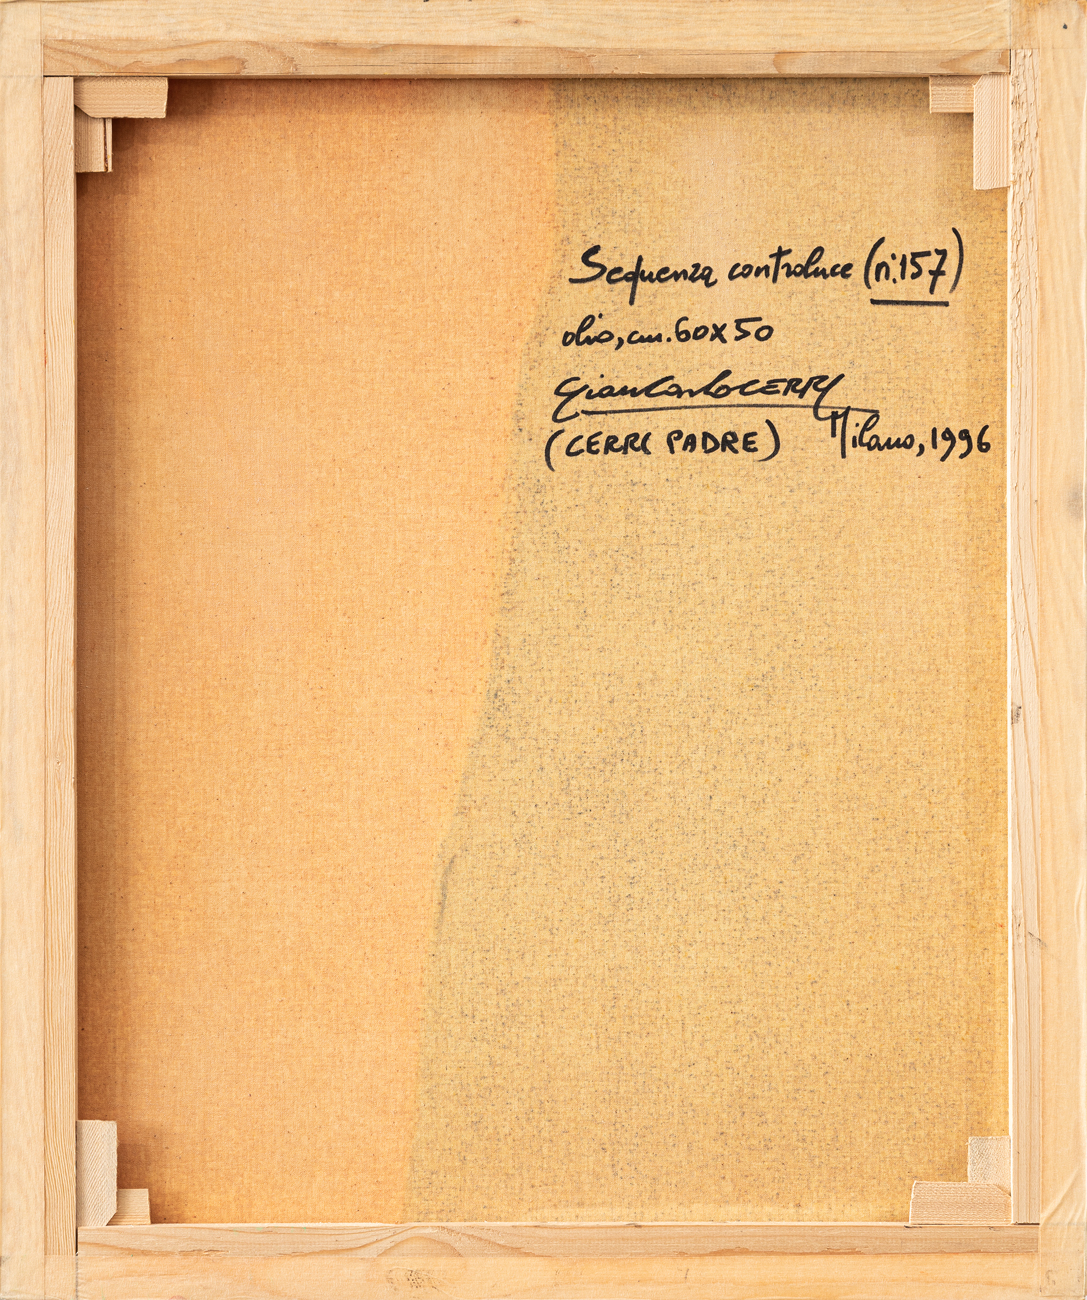 Sequenza controluce (n.157)
olio, cm. 60x50
GiancarloCERRI
(CERRI PADRE) Milano, 1996